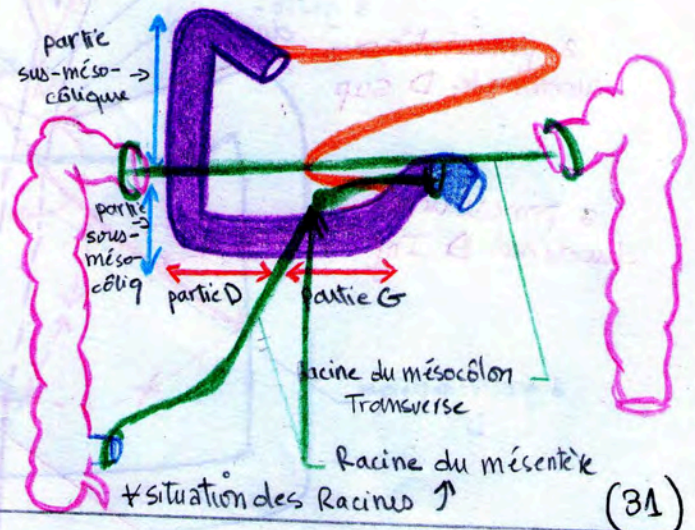 partie
sus-méso-
côlique
partie
sous-
méso-
côliq
partie D
partie G
Racine du mésocôlon
Transverse
Racine du mésentère
* situation des Racines
(31)